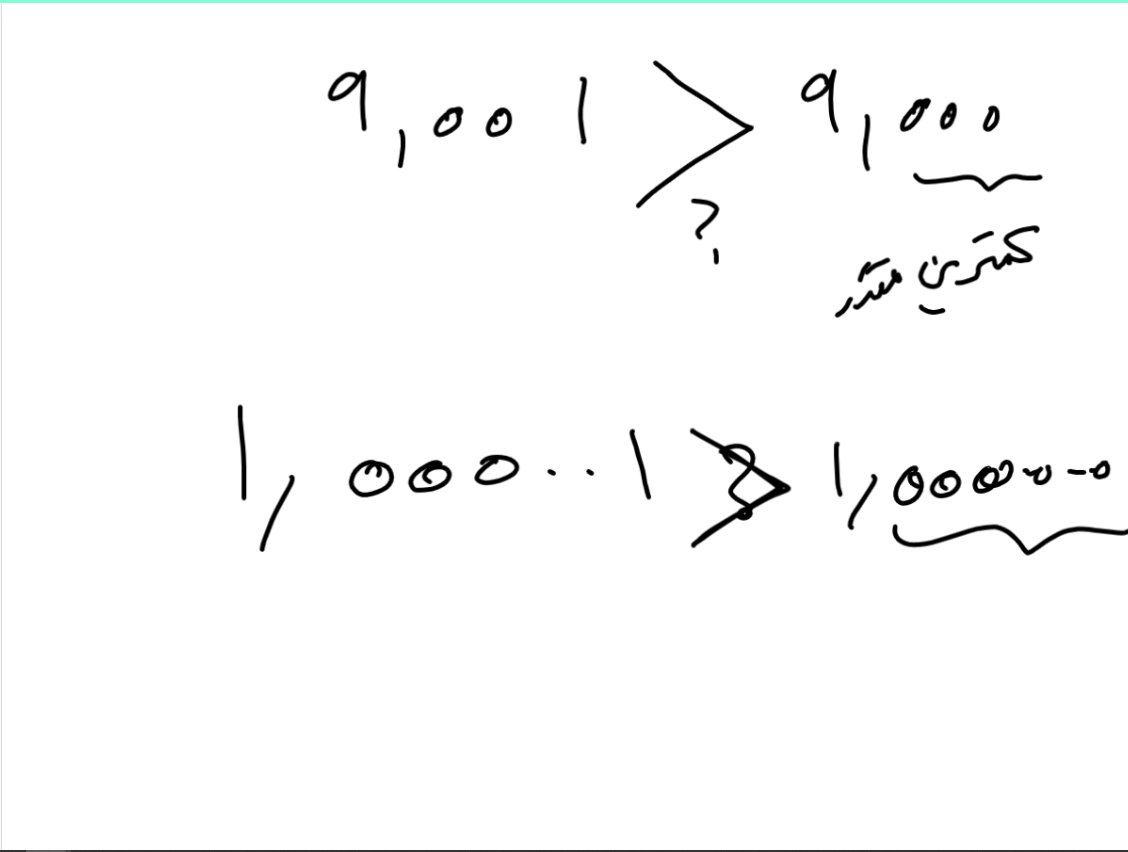 9,001 > 9,000
?
کمترین مقدار
1,000..1 > 1,000..-0
?